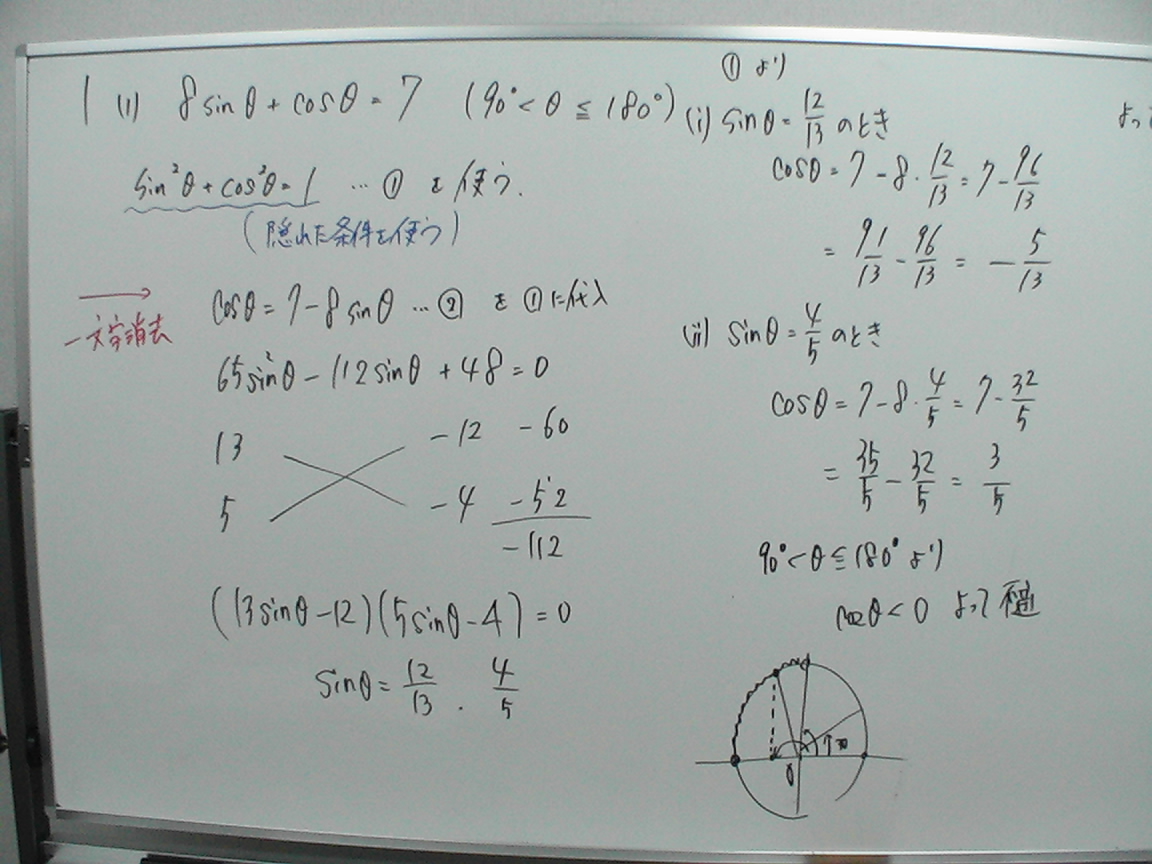 1 (1) 8sinθ + cosθ = 7 (90° < θ ≦ 180°)
sin²θ + cos²θ = 1 … ① を使う.
(隠れた条件を使う)
cosθ = 7 - 8sinθ … ② を ①に代入
一文字消去
65sin²θ - 112sinθ + 48 = 0
13 -12 -60
5 -4 -52
-112
(13sinθ - 12)(5sinθ - 4) = 0
sinθ = 12/13 . 4/5
① より
(i) sinθ = 12/13 のとき
cosθ = 7 - 8・12/13 = 7 - 96/13
= 91/13 - 96/13 = - 5/13
(ii) sinθ = 4/5 のとき
cosθ = 7 - 8・4/5 = 7 - 32/5
= 35/5 - 32/5 = 3/5
90° < θ ≦ 180° より
cosθ < 0 よって 不適
0
よって